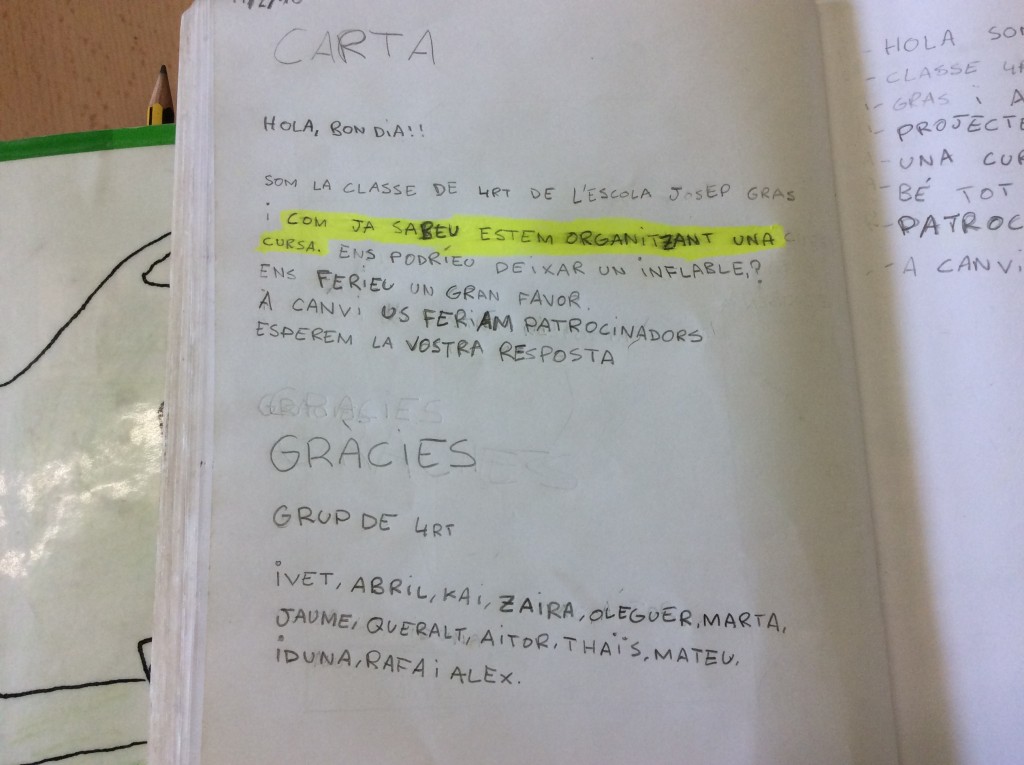 CARTA
HOLA, BON DiA!!
SOM LA CLASSE DE 4RT DE L'ESCOLA JOSEP GRAS
i COM JA SABEU ESTEM ORGANITZANT UNA
CURSA. ENS PODRÍEU DEIXAR UN INFLABLE,?
ENS FERIEU UN GRAN FAVOR.
A CANVI US FERIAM PATROCINADORS
ESPEREM LA VOSTRA RESPOSTA
GRÀCIES
GRUP DE 4RT
iVET, ABRIL, KAI, ZAIRA, OLEGUER, MARTA,
JAUME, QUERALT, AITOR, THAÏS, MATEU,
iDUNA, RAFA i ALEX.
- HOLA
- CLASSE
- GRAS i
- PROJECTE
- UNA
- BÉ TOT
- PATROC
- A CANVI